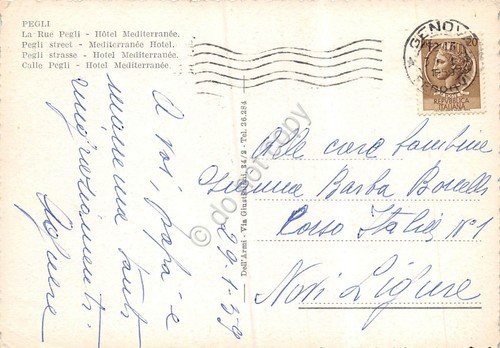 PEGLI
La Rue Pegli - Hôtel Mediterranée.
Pegli street - Mediterranée Hotel.
Pegli strasse - Hotel Mediterranée.
Calle Pegli - Hotel Mediterranée.
GENOVA
20
REPUBBLICA
ITALIANA
A voi papà e
mamma tanti
ringraziamenti
Dell'Armi - Via Giustiniani, 24/2 - Tel. 26.284
29-1-59
Alle care bambine
Barba Borelli
Corso Italia, N° 1
Novi Ligure